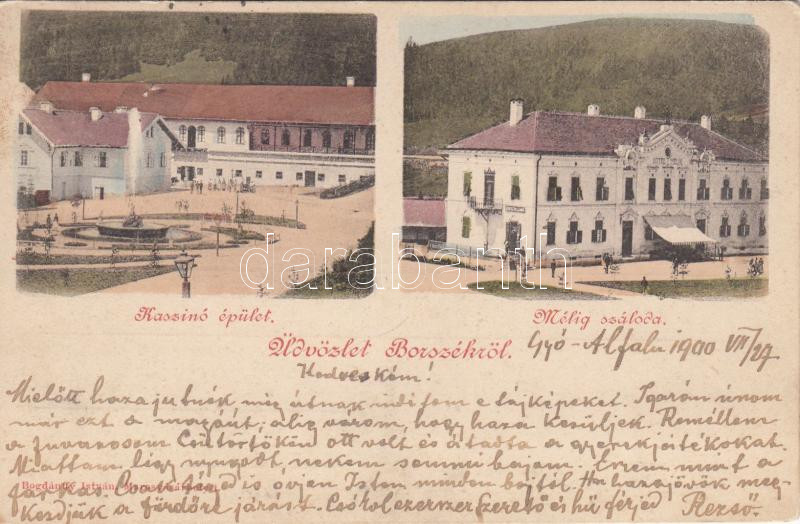 Kaszinó épület.
Mélig szálloda.
Üdvözlet Borszékről.
Gyó-Alfalu 1900 VII/27
Kedveském!
Mielőtt haza jutnék még útnak indítom e tájképeket. Igazán unom
már ezt a magánt; alig várom, hogy haza kerüljek. Remélem
a fuvarosom Csütörtökön ott volt és átadta a gyerekjátékokat.
Miattam légy nyugodt, nekem semmi bajom. Eszem mint a
farkas. Téged is óvjon Isten minden bajtól. Ha hazajövök meg-
kezdjük a fürdőre járást. Csókol ezerszer szerető és hű férjed Rezső
Bogdánffy István,
darabanth
HOTEL